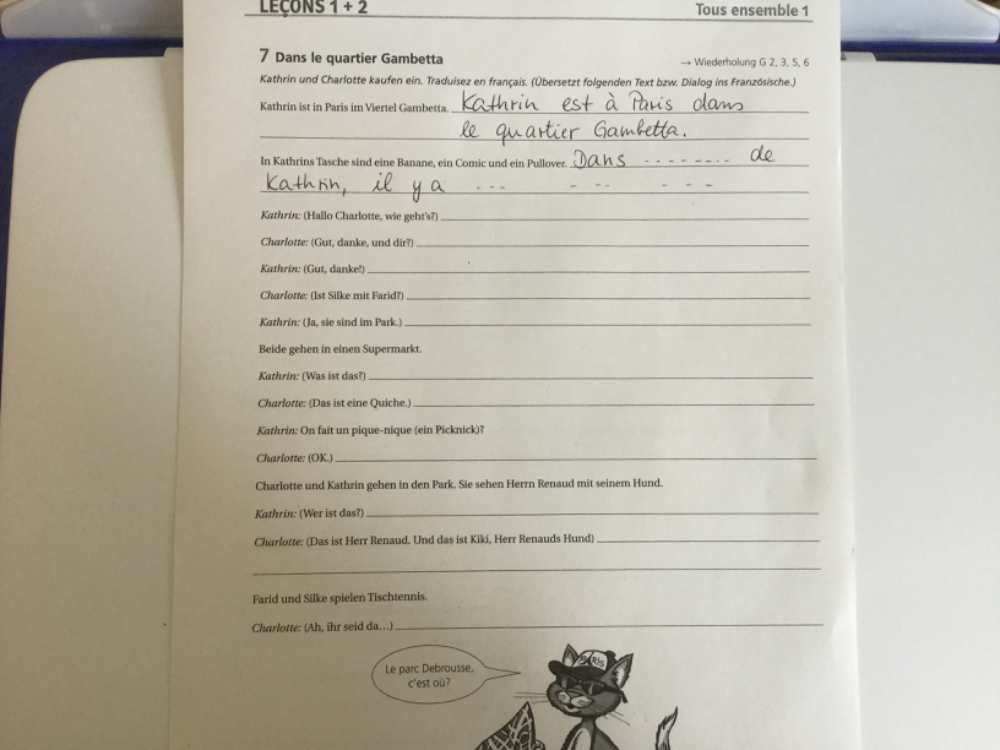 LEÇONS 1 + 2 Tous ensemble 1
7 Dans le quartier Gambetta → Wiederholung G 2, 3, 5, 6
Kathrin und Charlotte kaufen ein. Traduisez en français. (Übersetzt folgenden Text bzw. Dialog ins Französische.)
Kathrin ist in Paris im Viertel Gambetta. Kathrin est à Paris dans
le quartier Gambetta.
In Kathrins Tasche sind eine Banane, ein Comic und ein Pullover. Dans -------- de
Kathrin, il y a --- --- ---
Kathrin: (Hallo Charlotte, wie geht's?)
Charlotte: (Gut, danke, und dir?)
Kathrin: (Gut, danke!)
Charlotte: (Ist Silke mit Farid?)
Kathrin: (Ja, sie sind im Park.)
Beide gehen in einen Supermarkt.
Kathrin: (Was ist das?)
Charlotte: (Das ist eine Quiche.)
Kathrin: On fait un pique-nique (ein Picknick)?
Charlotte: (OK.)
Charlotte und Kathrin gehen in den Park. Sie sehen Herrn Renaud mit seinem Hund.
Kathrin: (Wer ist das?)
Charlotte: (Das ist Herr Renaud. Und das ist Kiki, Herr Renauds Hund)
Farid und Silke spielen Tischtennis.
Charlotte: (Ah, ihr seid da...)
PARIS
Le parc Debrousse,
c'est où?